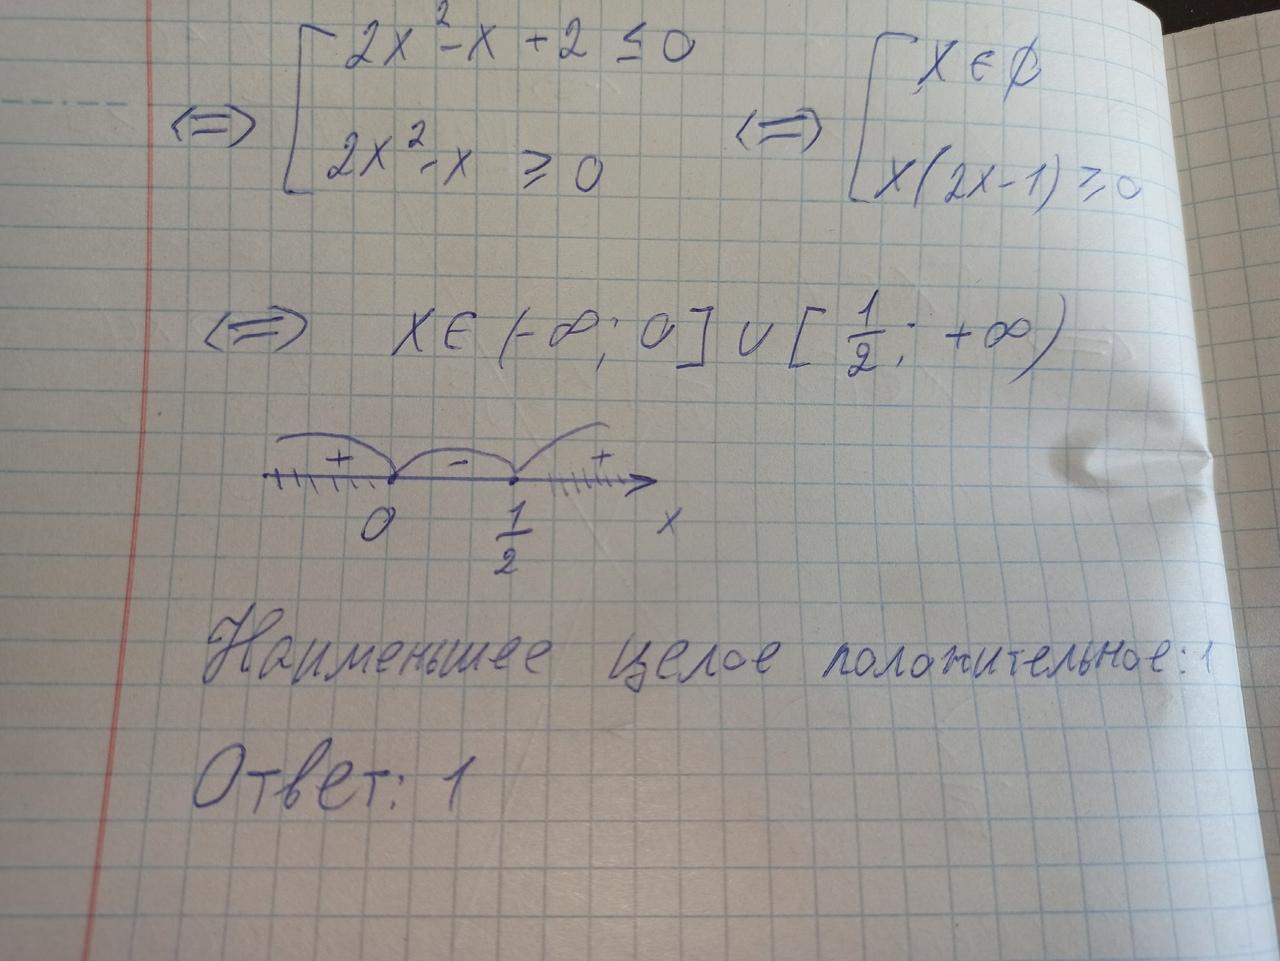 2x² - x + 2 ≤ 0
x ∈ ∅
⇔ [ ⇔ [
2x² - x ≥ 0
x(2x - 1) ≥ 0
⇔ x ∈ (-∞; 0] ∪ [1/2; +∞)
+ - +
0 1/2 x
Наименьшее целое положительное: 1
Ответ: 1